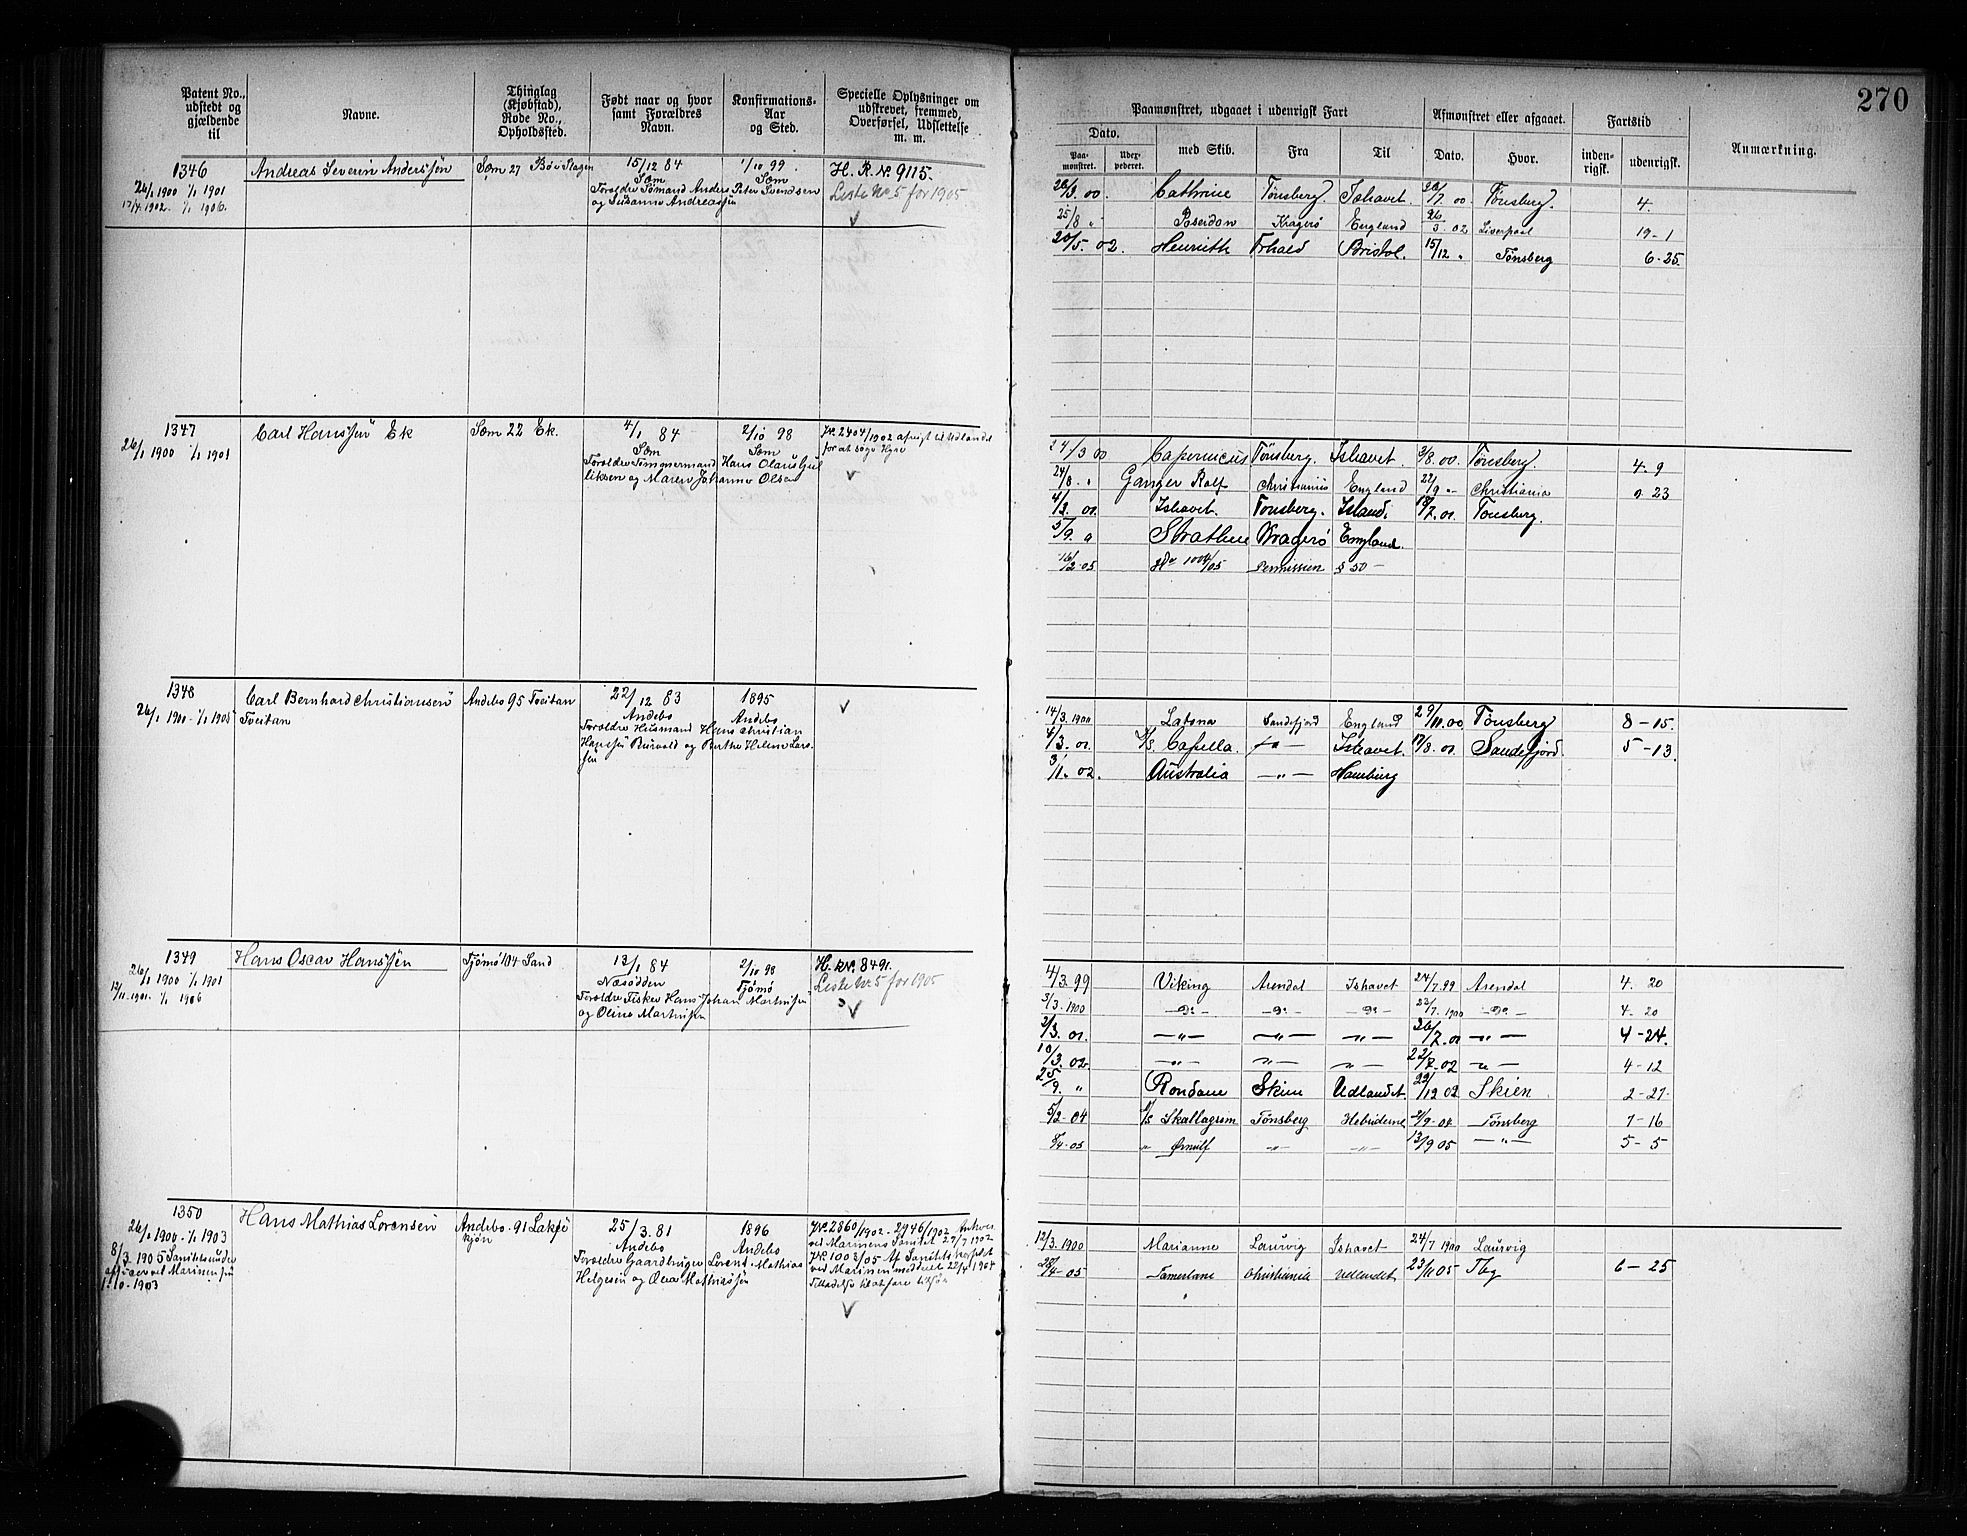 270
Patent No., udstedt og gjældende til
Navne.
Thinglag (Kjøbstad), Rode No., Opholdssted.
Født naar og hvor samt Forældres Navn.
Konfirmations-Aar og Sted.
Specielle Oplysninger om udskrevet, fremmed, Overførsel, Udslettelse m. m.
Paamønstret, udgaaet i udenrigsk Fart
Dato.
Paa-mønstret.
Uder-pederet.
med Skib.
Fra
Til
Afmønstret eller afgaaet.
Dato.
Hvor.
Fartstid
inden-rigsk.
udenrigsk.
Anmærkning.
1346
26/1 1900 1/1 1901
17/4 1902. 1/1 1906.
Andreas Severin Anderssen
Sæm 27 Bø i Slagen
15/12 84
Sæm
Foreldre Sømand Anders Peter Svendsen
og Susanne Andreasen
1/10 99
Sæm
H. R. No. 9115.
Liste No. 5 for 1905
26/3. 00. Cathrine Tønsberg Ishavet. 26/7 00. Tønsberg. 4.
25/8 " Poseidon Kragerø England 26/3 02 Liverpool 19-1
20/5. 02. Henrieth Frhald Bristol. 15/12 " Tønsberg 6-25.
1347
26/1 1900 1/1 1901
Carl Hanssen Ek
Sæm 22 Ek.
4/1 84
Sæm
Foreldre Tømmermand Hans Olaus Jul
liksen og Maren Johanne Olsen
2/10 98
Sæm
Jr. 2404/1902 afreist til Udlandet
for at søge Hyre
24/3 00 Copernicus Tønsberg. Ishavet. 3/8. 00. Tønsberg. 4-9
24/8. " Ganger Rolf Christiania England 22/9 "- Christiania 0 23
4/3. 01. Ishavet. Tønsberg. Island. 18/7. 01. Tønsberg.
5/9. " Kragerø England.
16/2 05 1004/05 Permission § 50 -
1348
26/1 1900 - 1/1 1905
Carl Bernhard Christiansen
Tveitan
Andebo 95 Tveitan
22/12 83
Andebo
Foreldre Husmand Hans Christian
Hanssen Burvold og Berthe Helene Lars-
sen
1895
Andebo
14/3. 1900 Latona Sandefjord England 29/11. 00. Tønsberg 8-15.
4/3. 01. S/S Capella. -"- Ishavet. 17/8. 01. Sandefjord. 5-13
3/1. 02. Australia -"- Hamburg
1349
26/1 1900 1/1 1901
12/11. 1901. 1/1 1906
Hans Oscar Hanssen
Tjømø 104 Sand
13/1 84
Næsodden
Foreldre Fisker Hans Johan Martinsen
og Oline Martinsen
2/10 98
Tjømø
H. R No. 8491.
Liste No. 5 for 1905
4/3. 99 Viking Arendal Ishavet 24/7. 99 Arendal 4. 20
3/3. 1900 -Do- -Do- -Do- 23/7. 1900 -Do- 4. 20
2/3. 01. -"- -"- -"- 26/7. 01 -"- 4-24.
10/3. 02. -"- -"- -"- 22/7. 02 -"- 4-12
25/9. " Rondane Skien Udlandet 22/12 02 Skien 2-27.
5/2-04 S/S Skallagrim Tønsberg Hebriderne 21/9-04 Tønsberg 7-16
8/4-05 " Ørnulf -"- -"- 13/9 05 -"- 5-5
1350
26/1 1900. - 1/1 1903
8/3 1905 Sanitetsunder
officer ved Marinen fra
1.10.-1903
Hans Mathias Lorensen
Andebo. 91 Lakse
kjøn
25/3. 81
Andebo
Foreldre Gaardbruger Lorens Mathias
Helgesen og Olea Mathiasen
1896
Andebo
Jr. 2860/1902. - 2946/1902
ved Marinens Sanitet 29/7 1902
Jr. 1003/05
ved Marinen meddelt 22/4 1904
Tilladelse til at fare tilsjøs
12/3. 1900 Marianne Laurvig Ishavet 24/7 1900 Laurvig
28/4-05 Tamerlane Christiania Udlandet 23/11 05 Tbg 6-25